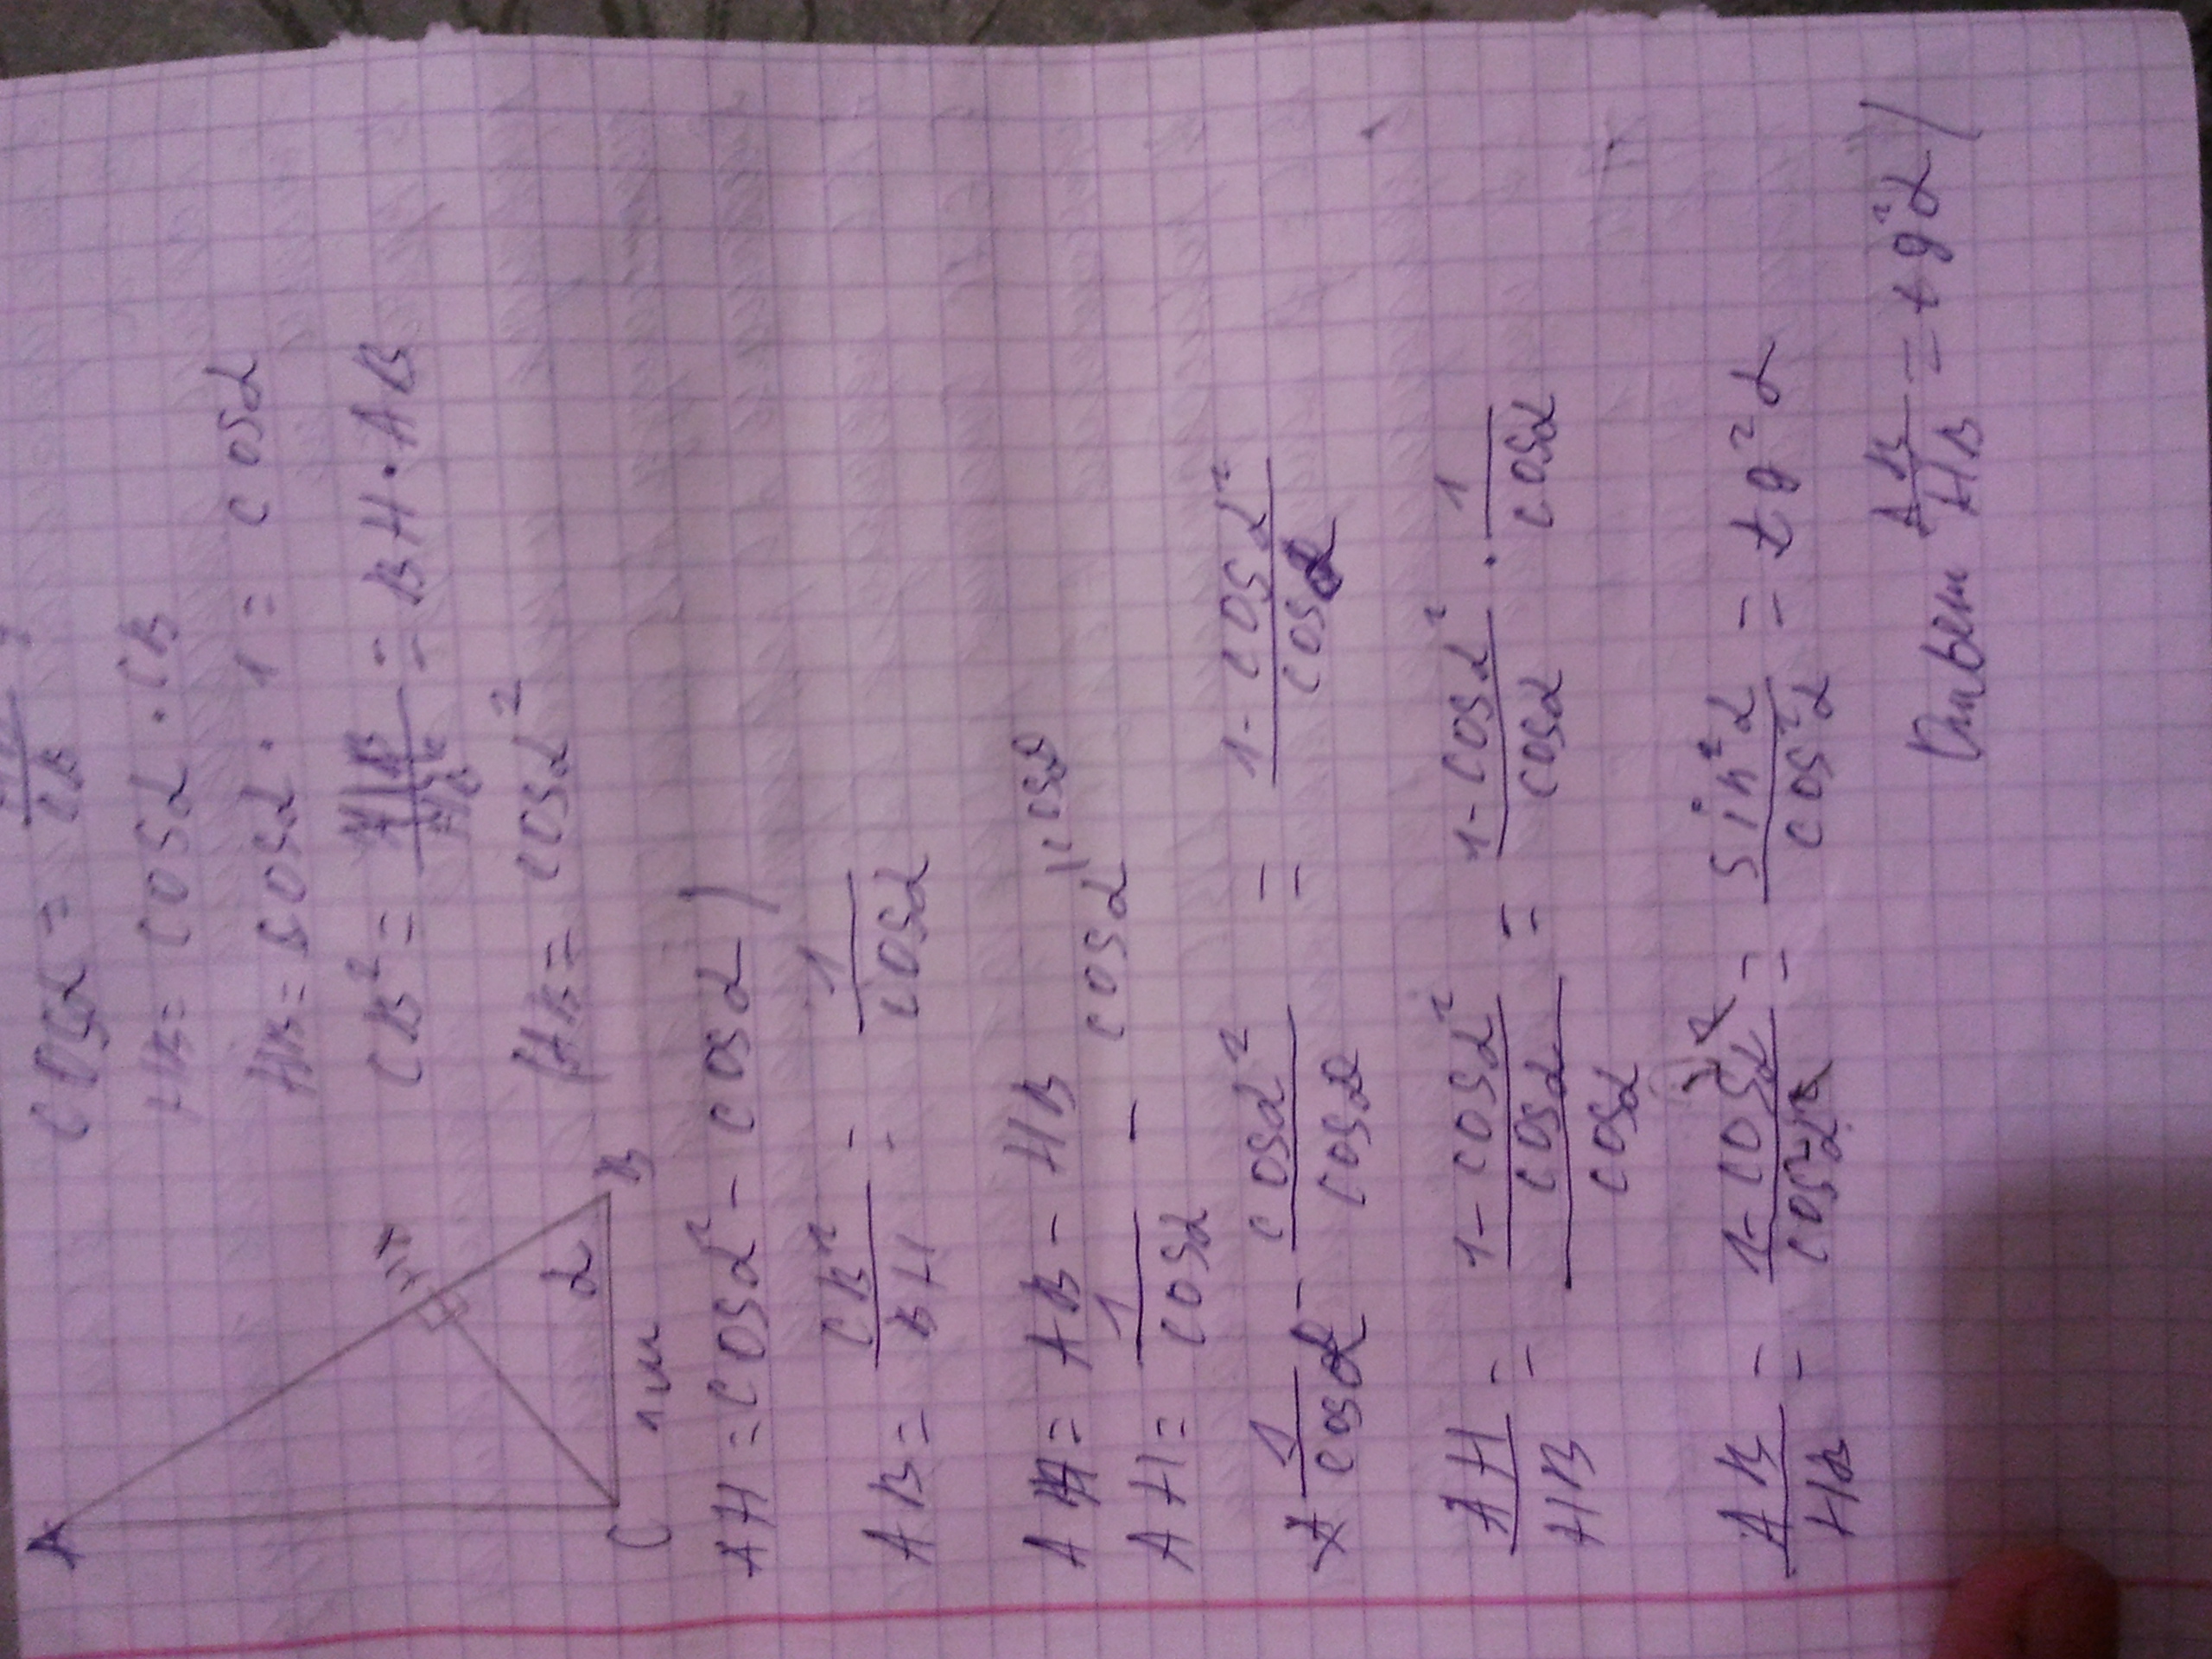 cosα = HB/CB
HB = cosα · CB
HB = cosα · 1 = cosα
CB² = = BH · AB
AB = cosα²
A
H
α
B
C 1 см
AH = cosα² - cosα
AB = CB²/BH = 1/cosα
AH = AB - HB
AH = 1/cosα - cosα\cosα
1/cosα - cosα²/cosα = 1-cosα²/cosα
AH/HB = 1-cosα²/cosα/cosα = 1-cosα²/cosα · 1/cosα
AB/HB = 1-cos²α/cos²α = sin²α/cos²α = tg²α
Ответ AB/HB = tg²α